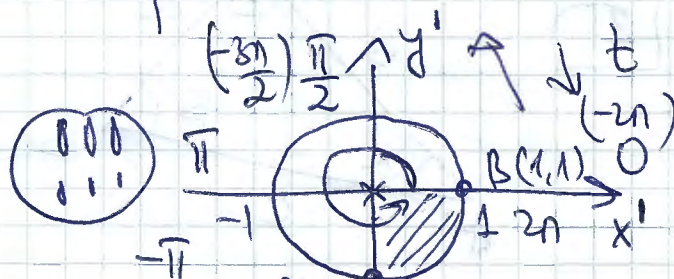 (-3π/2) π/2 y' t
(-2π)
π B(1,1) 0
-1 1 2π x'
-π